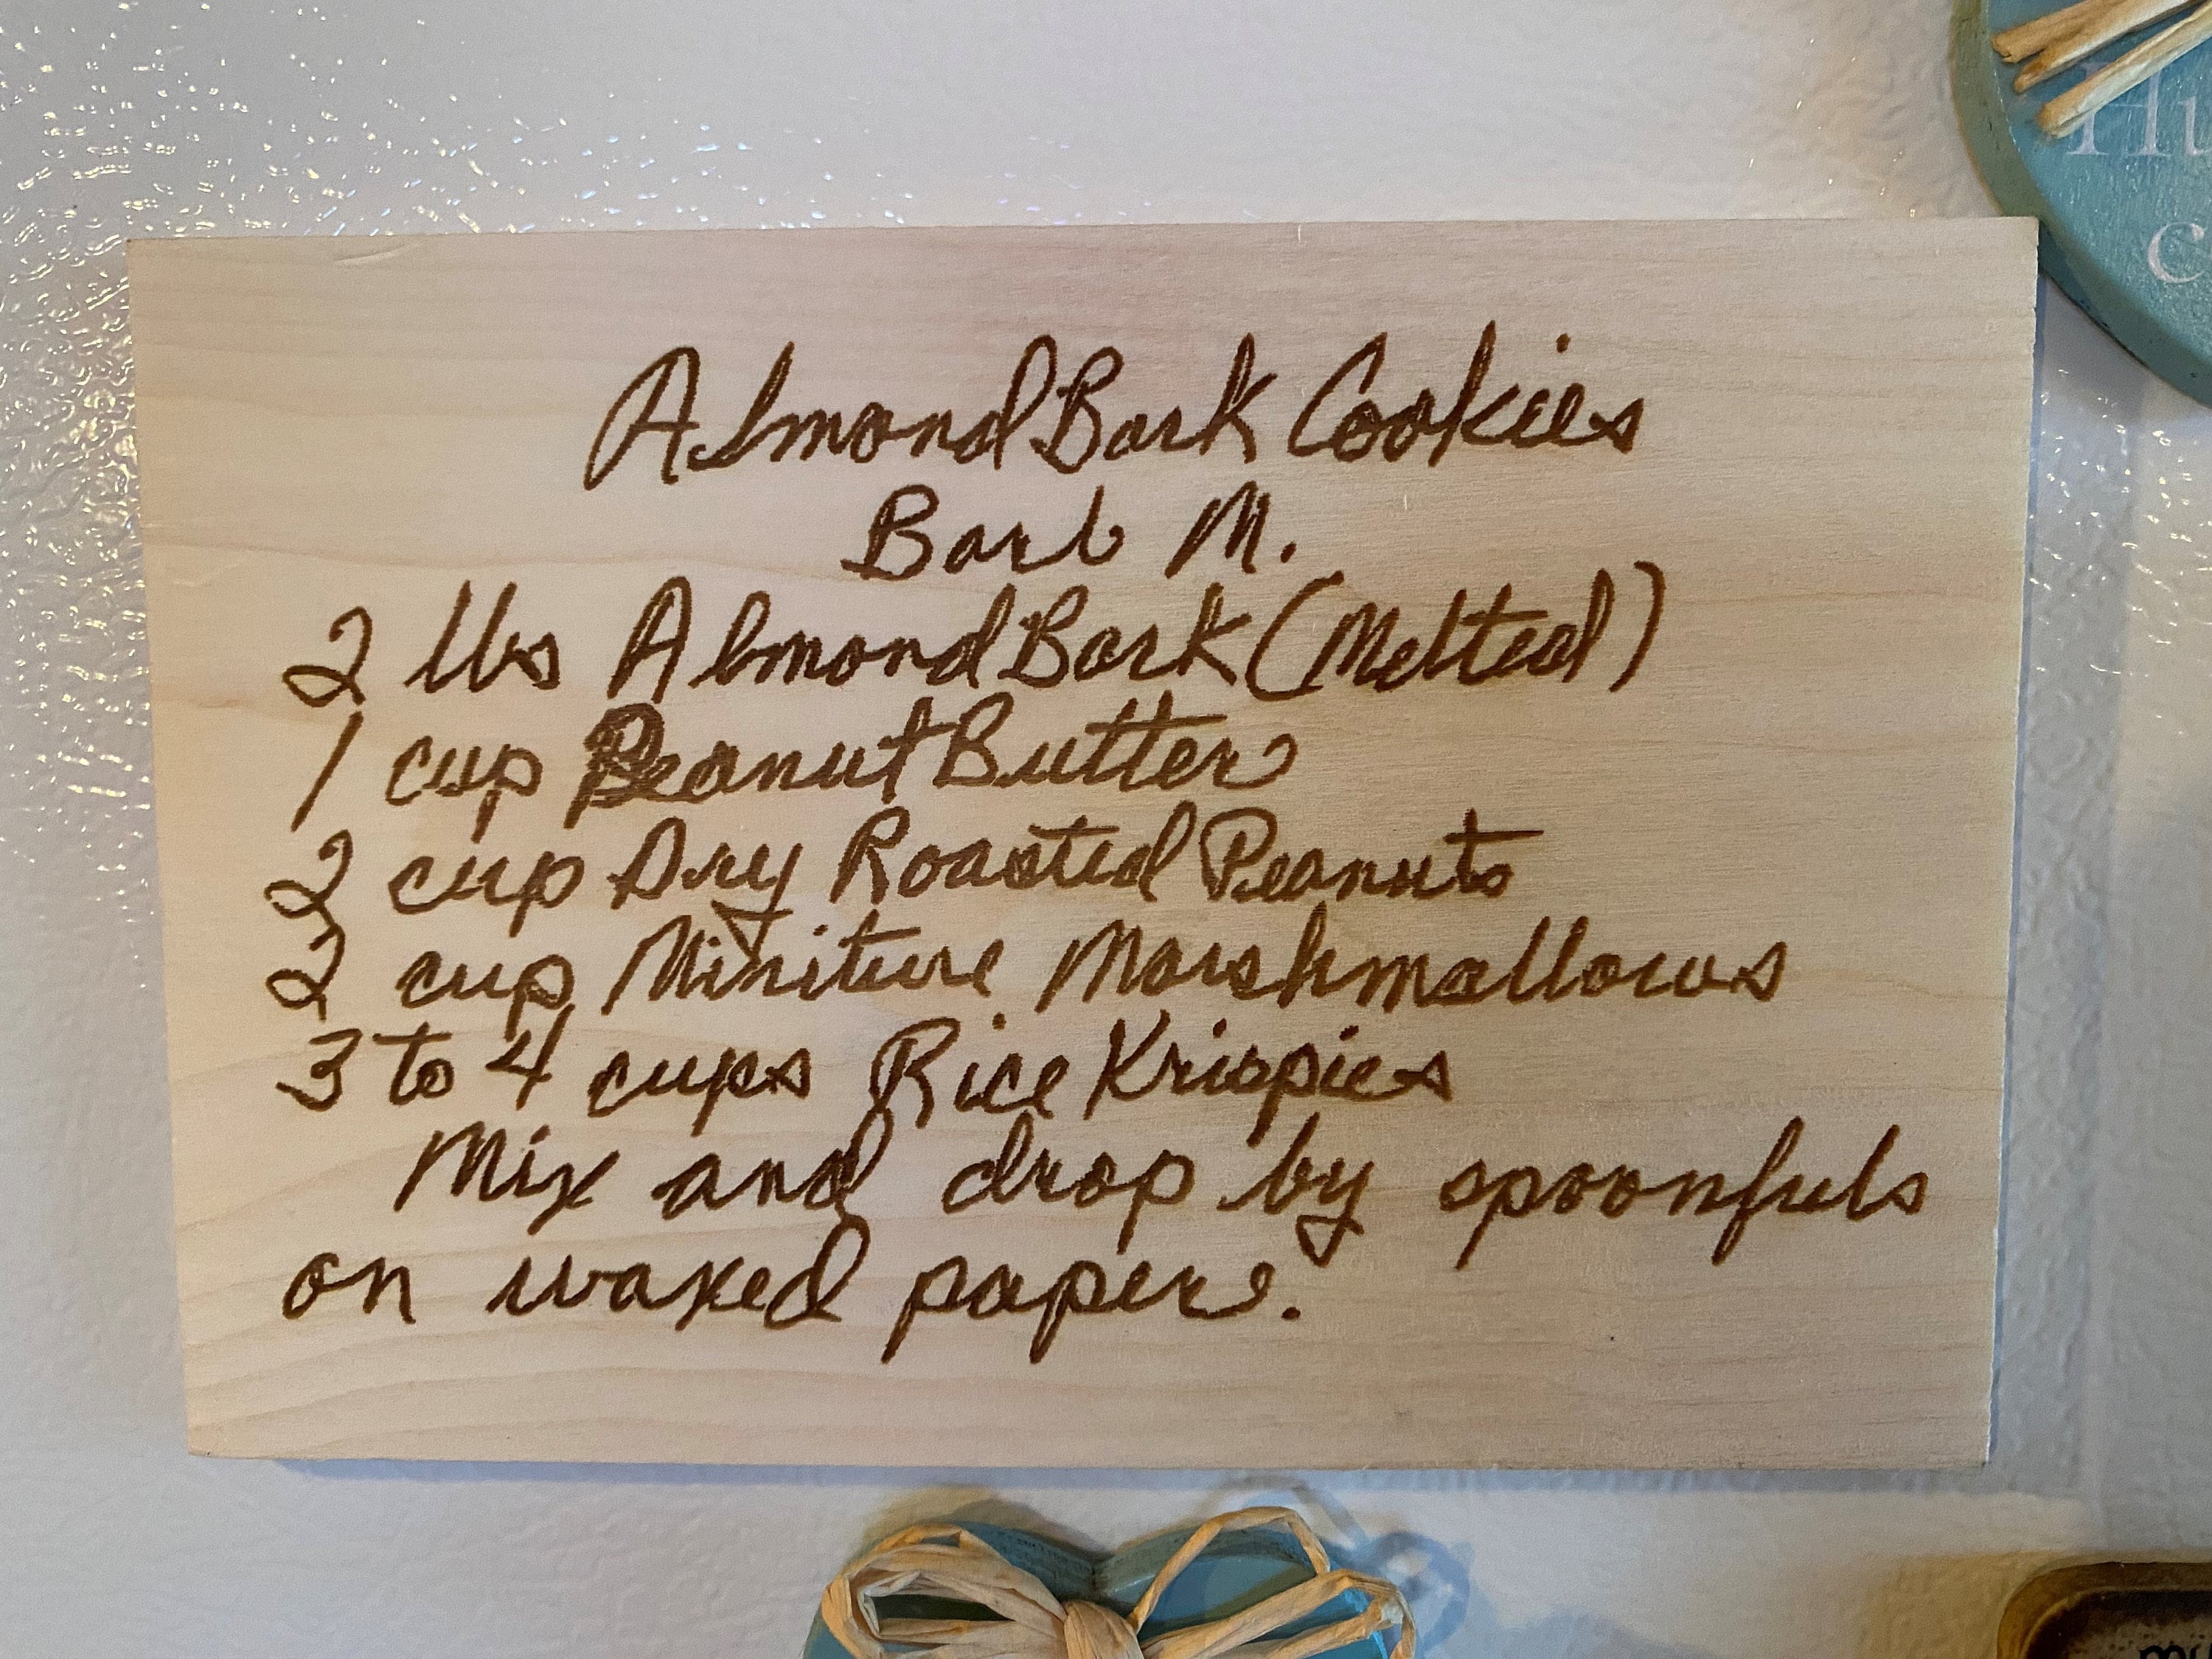 Almond Bark Cookies
Barb M.
2 lbs Almond Bark (Melted)
1 cup Peanut Butter
2 cup Dry Roasted Peanuts
2 cup Miniture Marshmallows
3 to 4 cups Rice Krispies
Mix and drop by spoonfuls
on waxed paper.